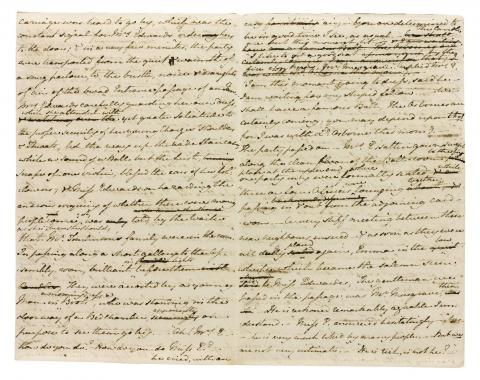 carriage was heard to go by, which was the
constant signal for Mrs Edwards's ordering hers
to the door; & in a very few minutes, the party
were transported from the quiet warmth of
a snug parlour, to the bustle, noise & draughts
of air of the broad Entrance passage of an Inn.
Mrs Edwards carefully guarding her own dress,
while she attended with yet greater Solicitude to
the proper security of her young Charges' Shoulders
& Throats, led the way up the wide Staircase,
while no sound of a Ball but the first
Scrape of one violin, blessed the ears of her fol-
lowers, & Miss Edwards on hazarding the
anxious enquiry of whether there were many
people come yet was told by the Waiter
as she knew she should,
that Mr Tomlinson's family were in the room.
In passing along a short gallery to the As-
sembly room, brilliant in lights before them
they were accosted by a young
Man in a morning dress & Boots, who was standing in the
door way of a Bedchamber apparently on
purpose to see them go by. Ah! Mrs E
how do you do? How do you do Miss E?
he cried, with an
easy air; You are determined to
be in good time I see, as usual. The Candles
are but this moment lit
Mr Musgrave. replied Mrs E.
I am this moment going to dress, said he
I am waiting for my stupid fellow. We
shall have a famous Ball. The Osbornes are
certainly coming; you may depend upon that
for I was with Ld Osborne this morng
The party passed on. Mrs E's sattin gown swept
along the clean floor of the Ball-room, to the fire
place at the upper end, where
one party only were formally seated, while
three or four Officers were lounging together,
passing in & out from the adjoining card-
room. A very stiff meeting between these
near neighbours ensued & as soon as they were
all duely placed again, Emma in the low
whisper which became the solemn scene,
said to Miss Edwardes, The gentleman we
passed in the passage, was Mr Musgrave, then?
He is reckoned remarkably agreable I un-
derstand. Miss E. answered hesitatingly Yes
he is very much liked by many people. But we
are not very intimate. He is rich, is not he?